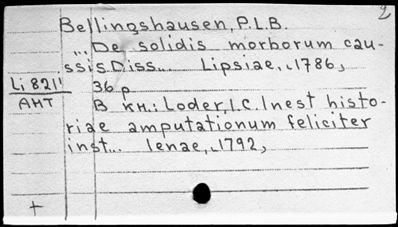 2
Bellingshausen, P.L.B.
... De solidis morborum cau-
ssis Diss... Lipsiae, 1786,
Li 8211
36 p
АНТ
В кн.: Loder, I.C. Inest histo-
riae amputationum feliciter
inst... Ienae, 1792,
+